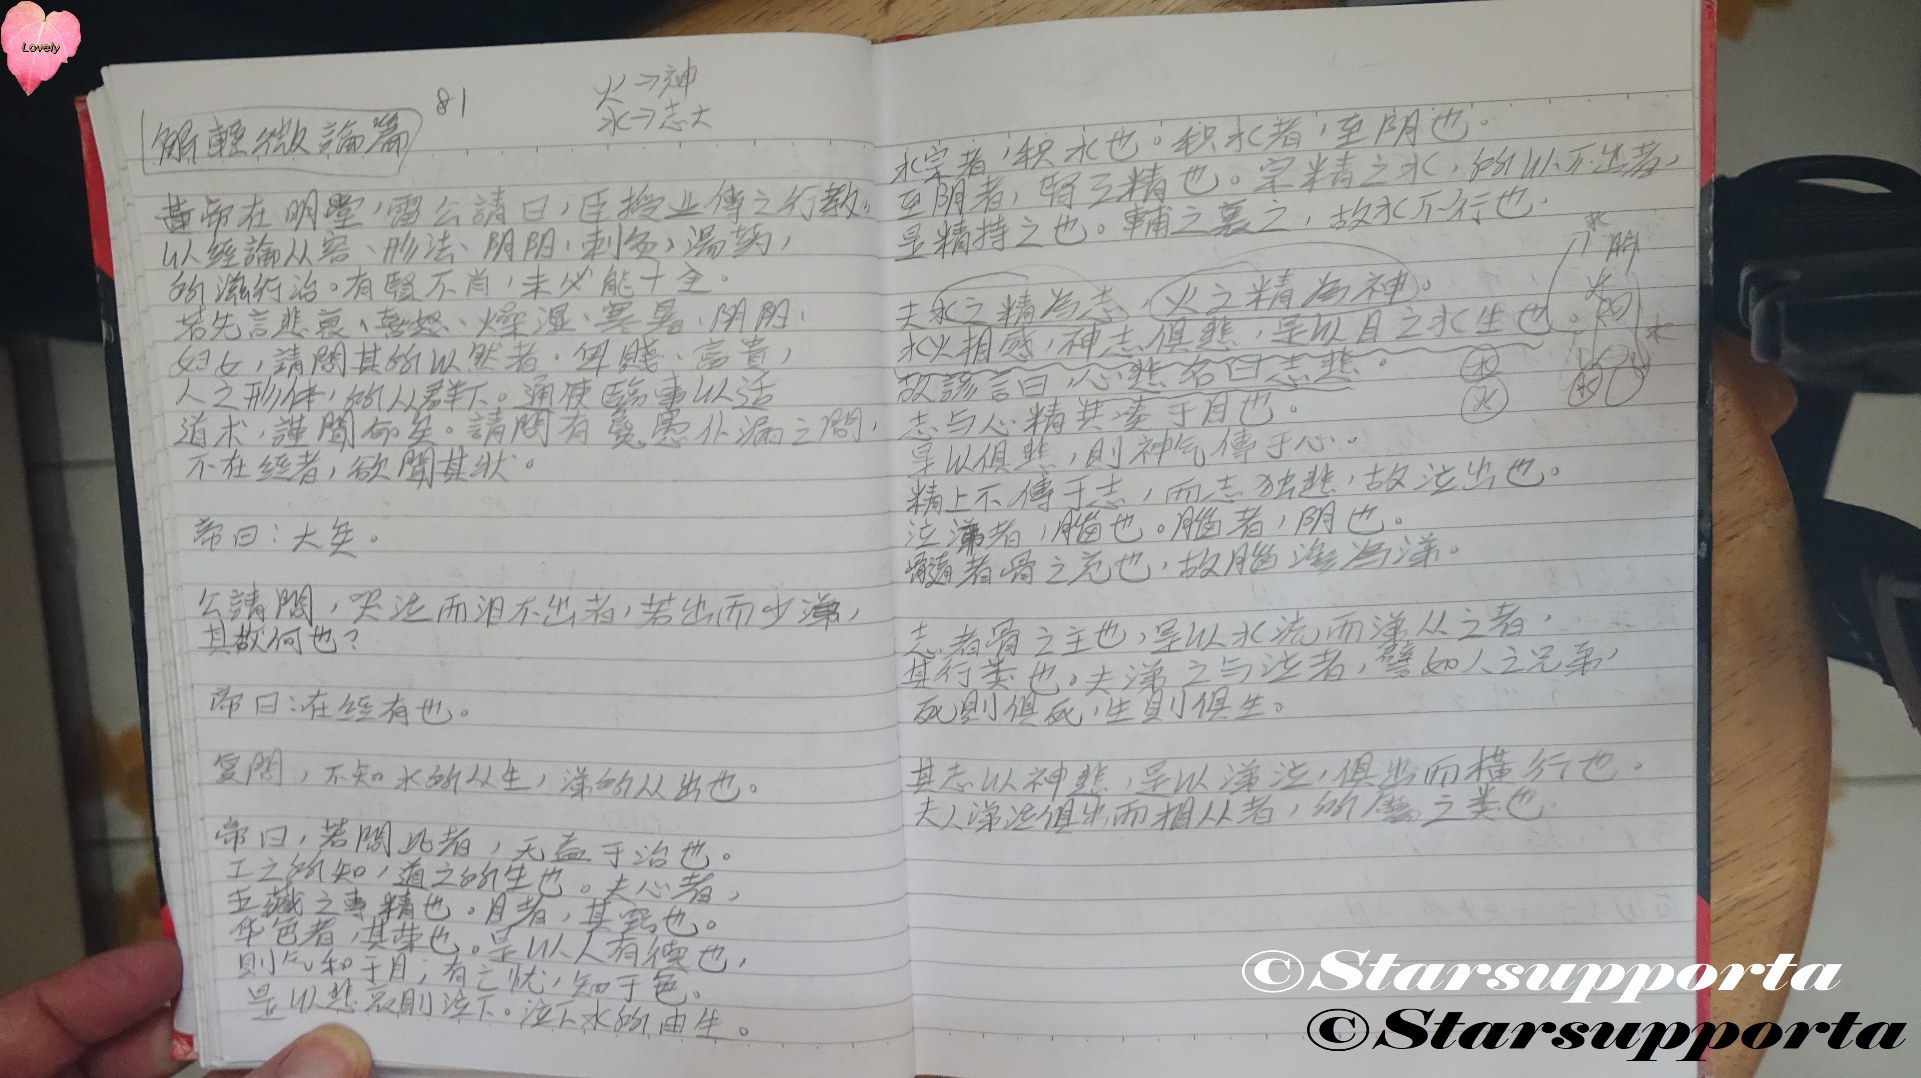 Lovely
81
火→神
水→志
解輕微論篇
黃帝在明堂,雷公請曰,臣授业傳之行教。
以經論从容、形法、阴阳,刺灸,湯药,
所滋行治。有賢不肖,未必能十全。
若先言悲哀、喜怒、燥湿、寒暑、阴阳、
妇女,請問其所以然者,卑賤、富貴,
人之形体,所从群下。通使臨事以适
道术,謹聞命矣。請問有 仆漏之問,
不在經者,欲聞其狀。
帝曰:大矣。
公請問,哭泣而泪不出者,若出而少涕,
其故何也?
帝曰:在經有也。
复問,不知水所从生,涕所从出也。
帝曰,若問此者,无益于治也。
工之所知,道之所生也。夫心者,
五藏之專精也。目者,其窍也。
华色者,其荣也。是以人有德也,
則气和于目;有亡忧,知于色。
是以悲哀則泣下。泣下水所由生。
水宗者,积水也。积水者,至阴也。
至阴者,腎之精也。宗精之水,所以不出者,
是精持之也。輔之裹之,故水不行也。
夫水之精為志,火之精為神。
水火相感,神志俱悲,是以目之水生也。
故諺言曰,心悲名曰志悲。
志与心精共凑于目也。
是以俱悲,則神气傳于心。
精上不傳于志,而志独悲,故泣出也。
泣涕者,腦也。腦者,阴也。
髓者骨之充也,故腦滲為涕。
志者骨之主也,是以水流而涕从之者,
其行类也。夫涕之与泣者,譬如人之兄弟,
死則俱死,生則俱生。
其志以神悲,是以涕泣,俱出而横行也。
夫人涕泣俱出而相从者,所屬之类也
水
火
目
水
©Starsupporta
©Starsupporta